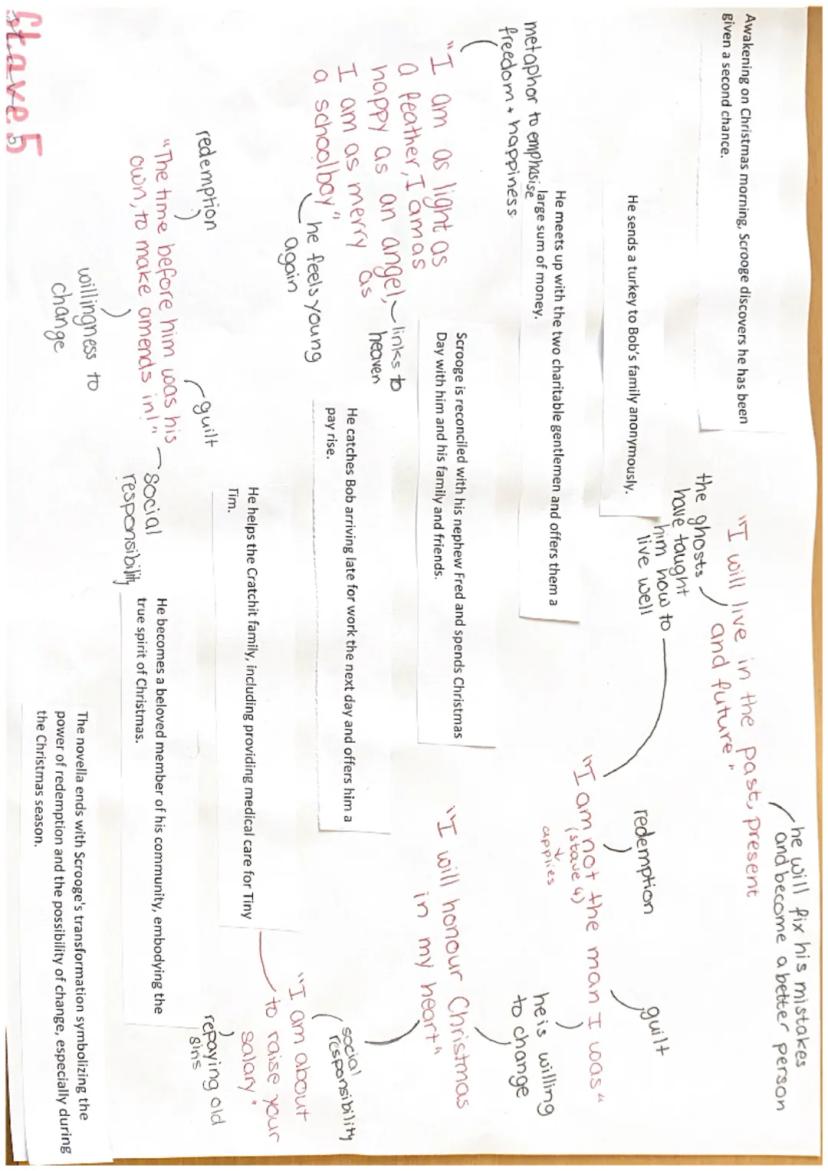 Awakening on Christmas morning, Scrooge discovers he has been
given a second chance.
"I will live in the past, present
and future"
he will fix his mistakes
and become a better person
the ghosts
have taught
him how to
live well
He sends a turkey to Bob's family anonymously.
"I am not the man I was"
(stave 4)
applies
redemption
guilt
he is willing
to change
He meets up with the two charitable gentlemen and offers them a
large sum of money.
metaphor to emphasise
freedom + happiness
"I am as light as
a feather, I am as
happy as an angel,
I am as merry as
a schoolboy"
links to
heaven
he feels young
again
Scrooge is reconciled with his nephew Fred and spends Christmas
Day with him and his family and friends.
"I will honour Christmas
in my heart"
social
responsibility
He catches Bob arriving late for work the next day and offers him a
pay rise.
He helps the Cratchit family, including providing medical care for Tiny
Tim.
"I am about
to raise your
salary"
repaying old
sins
redemption
"The time before him was his
own, to make amends in!"
guilt
willingness to
change
social
responsibility
He becomes a beloved member of his community, embodying the
true spirit of Christmas.
The novella ends with Scrooge's transformation symbolizing the
power of redemption and the possibility of change, especially during
the Christmas season.
Stave 5